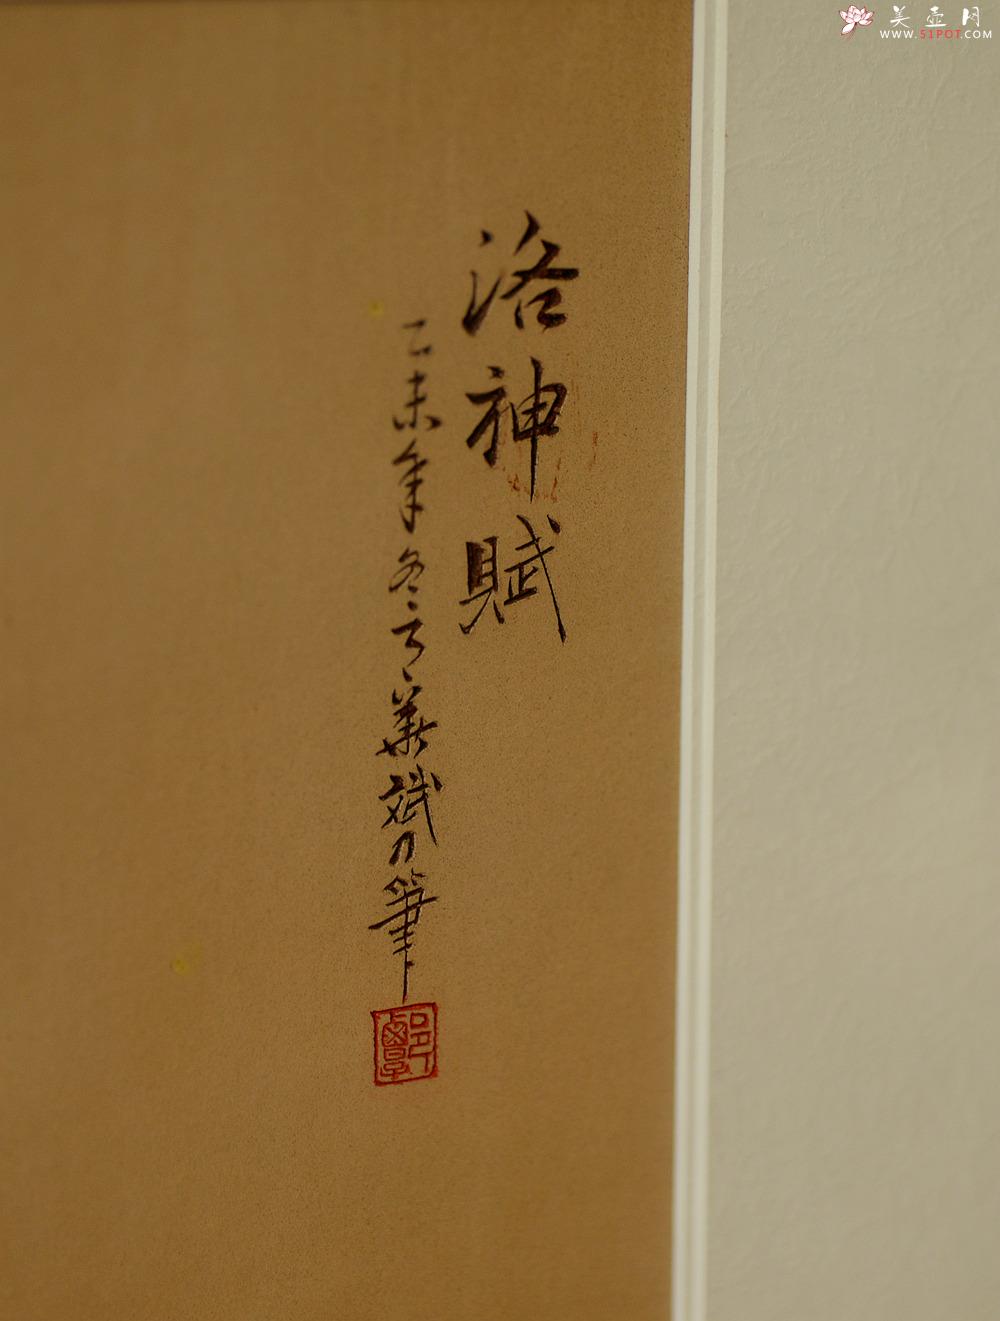 洛神賦
乙未年冬月華斌刀筆
美壶网
WWW.51POT.COM